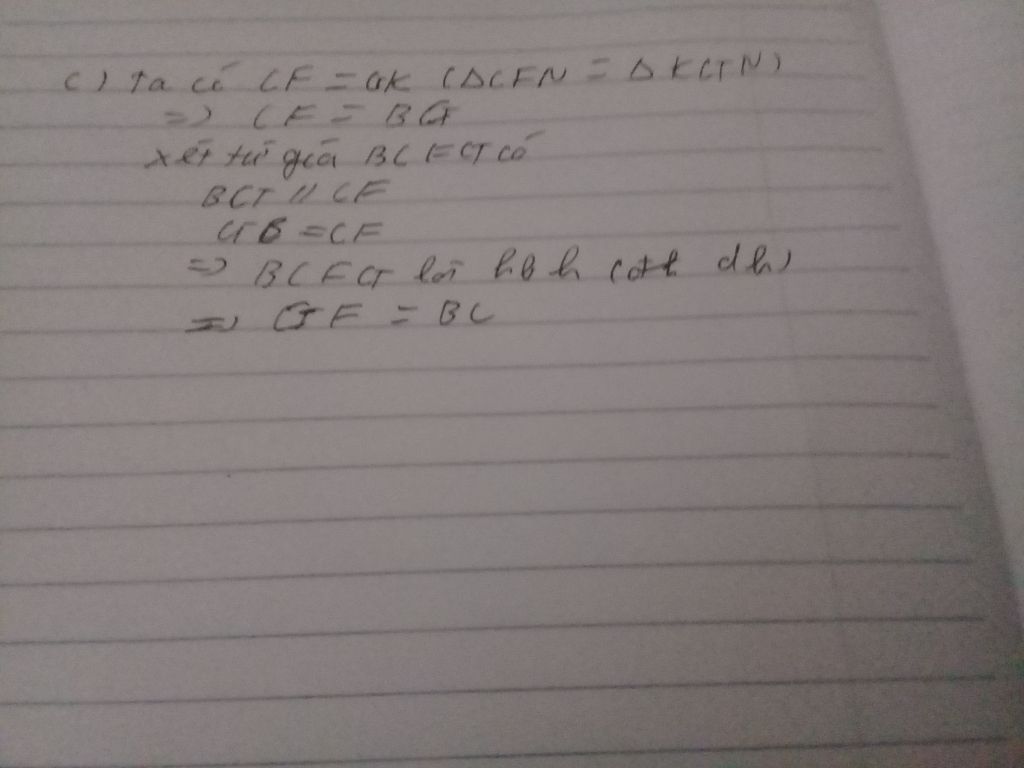 c) Ta có CF = GK (ΔCFN = ΔKGN)
=> CF = BG
xét tứ giá BCFG có
BG // CF
GB = CF
=> BCFG là hbh ( dh)
=> GF = BC